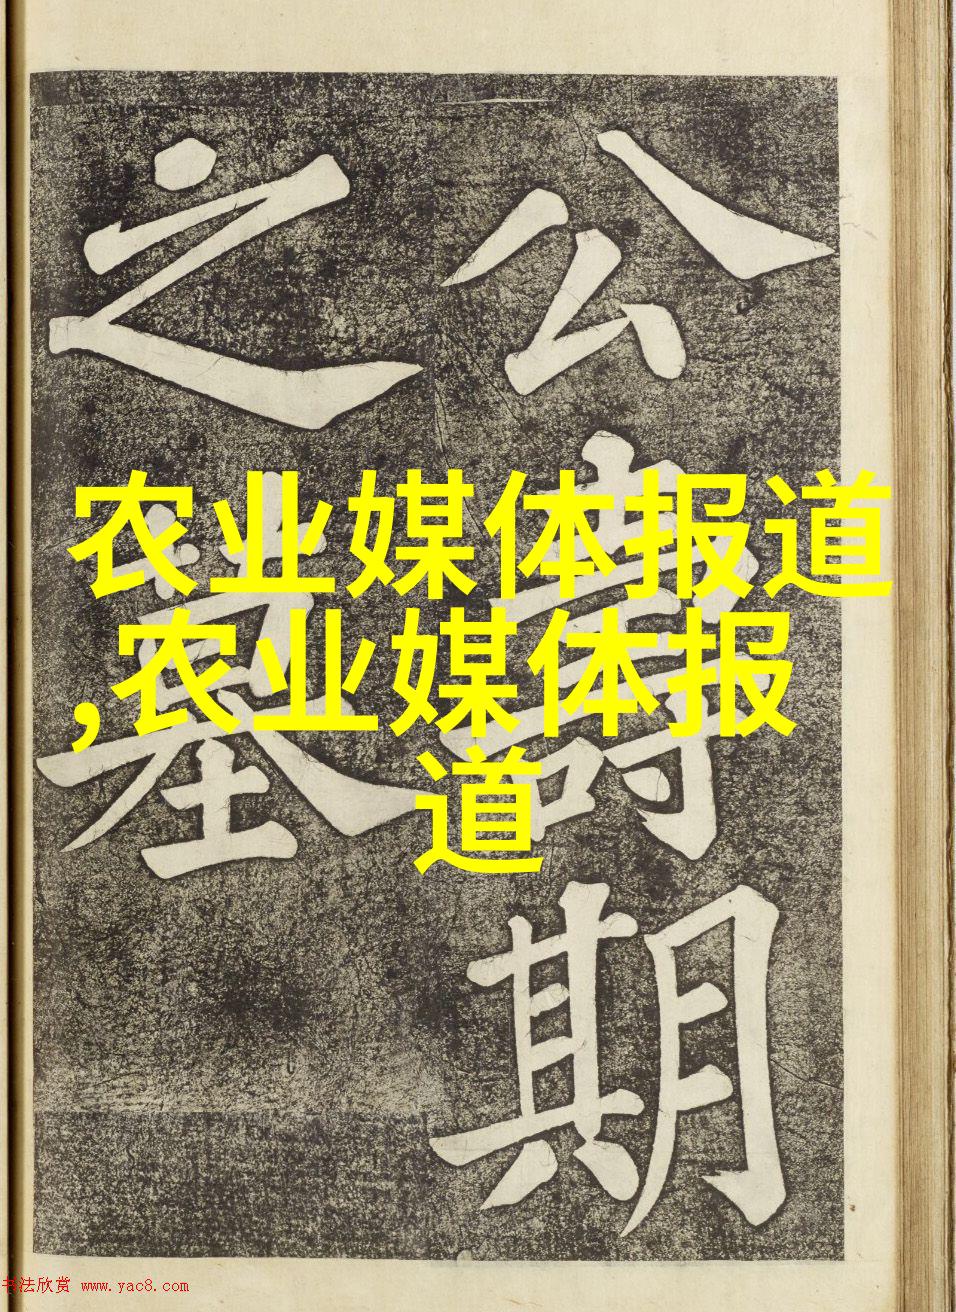 公壽期
之墓
农业媒体报道
,农业媒体报
道
书法欣赏 www.yac8.com